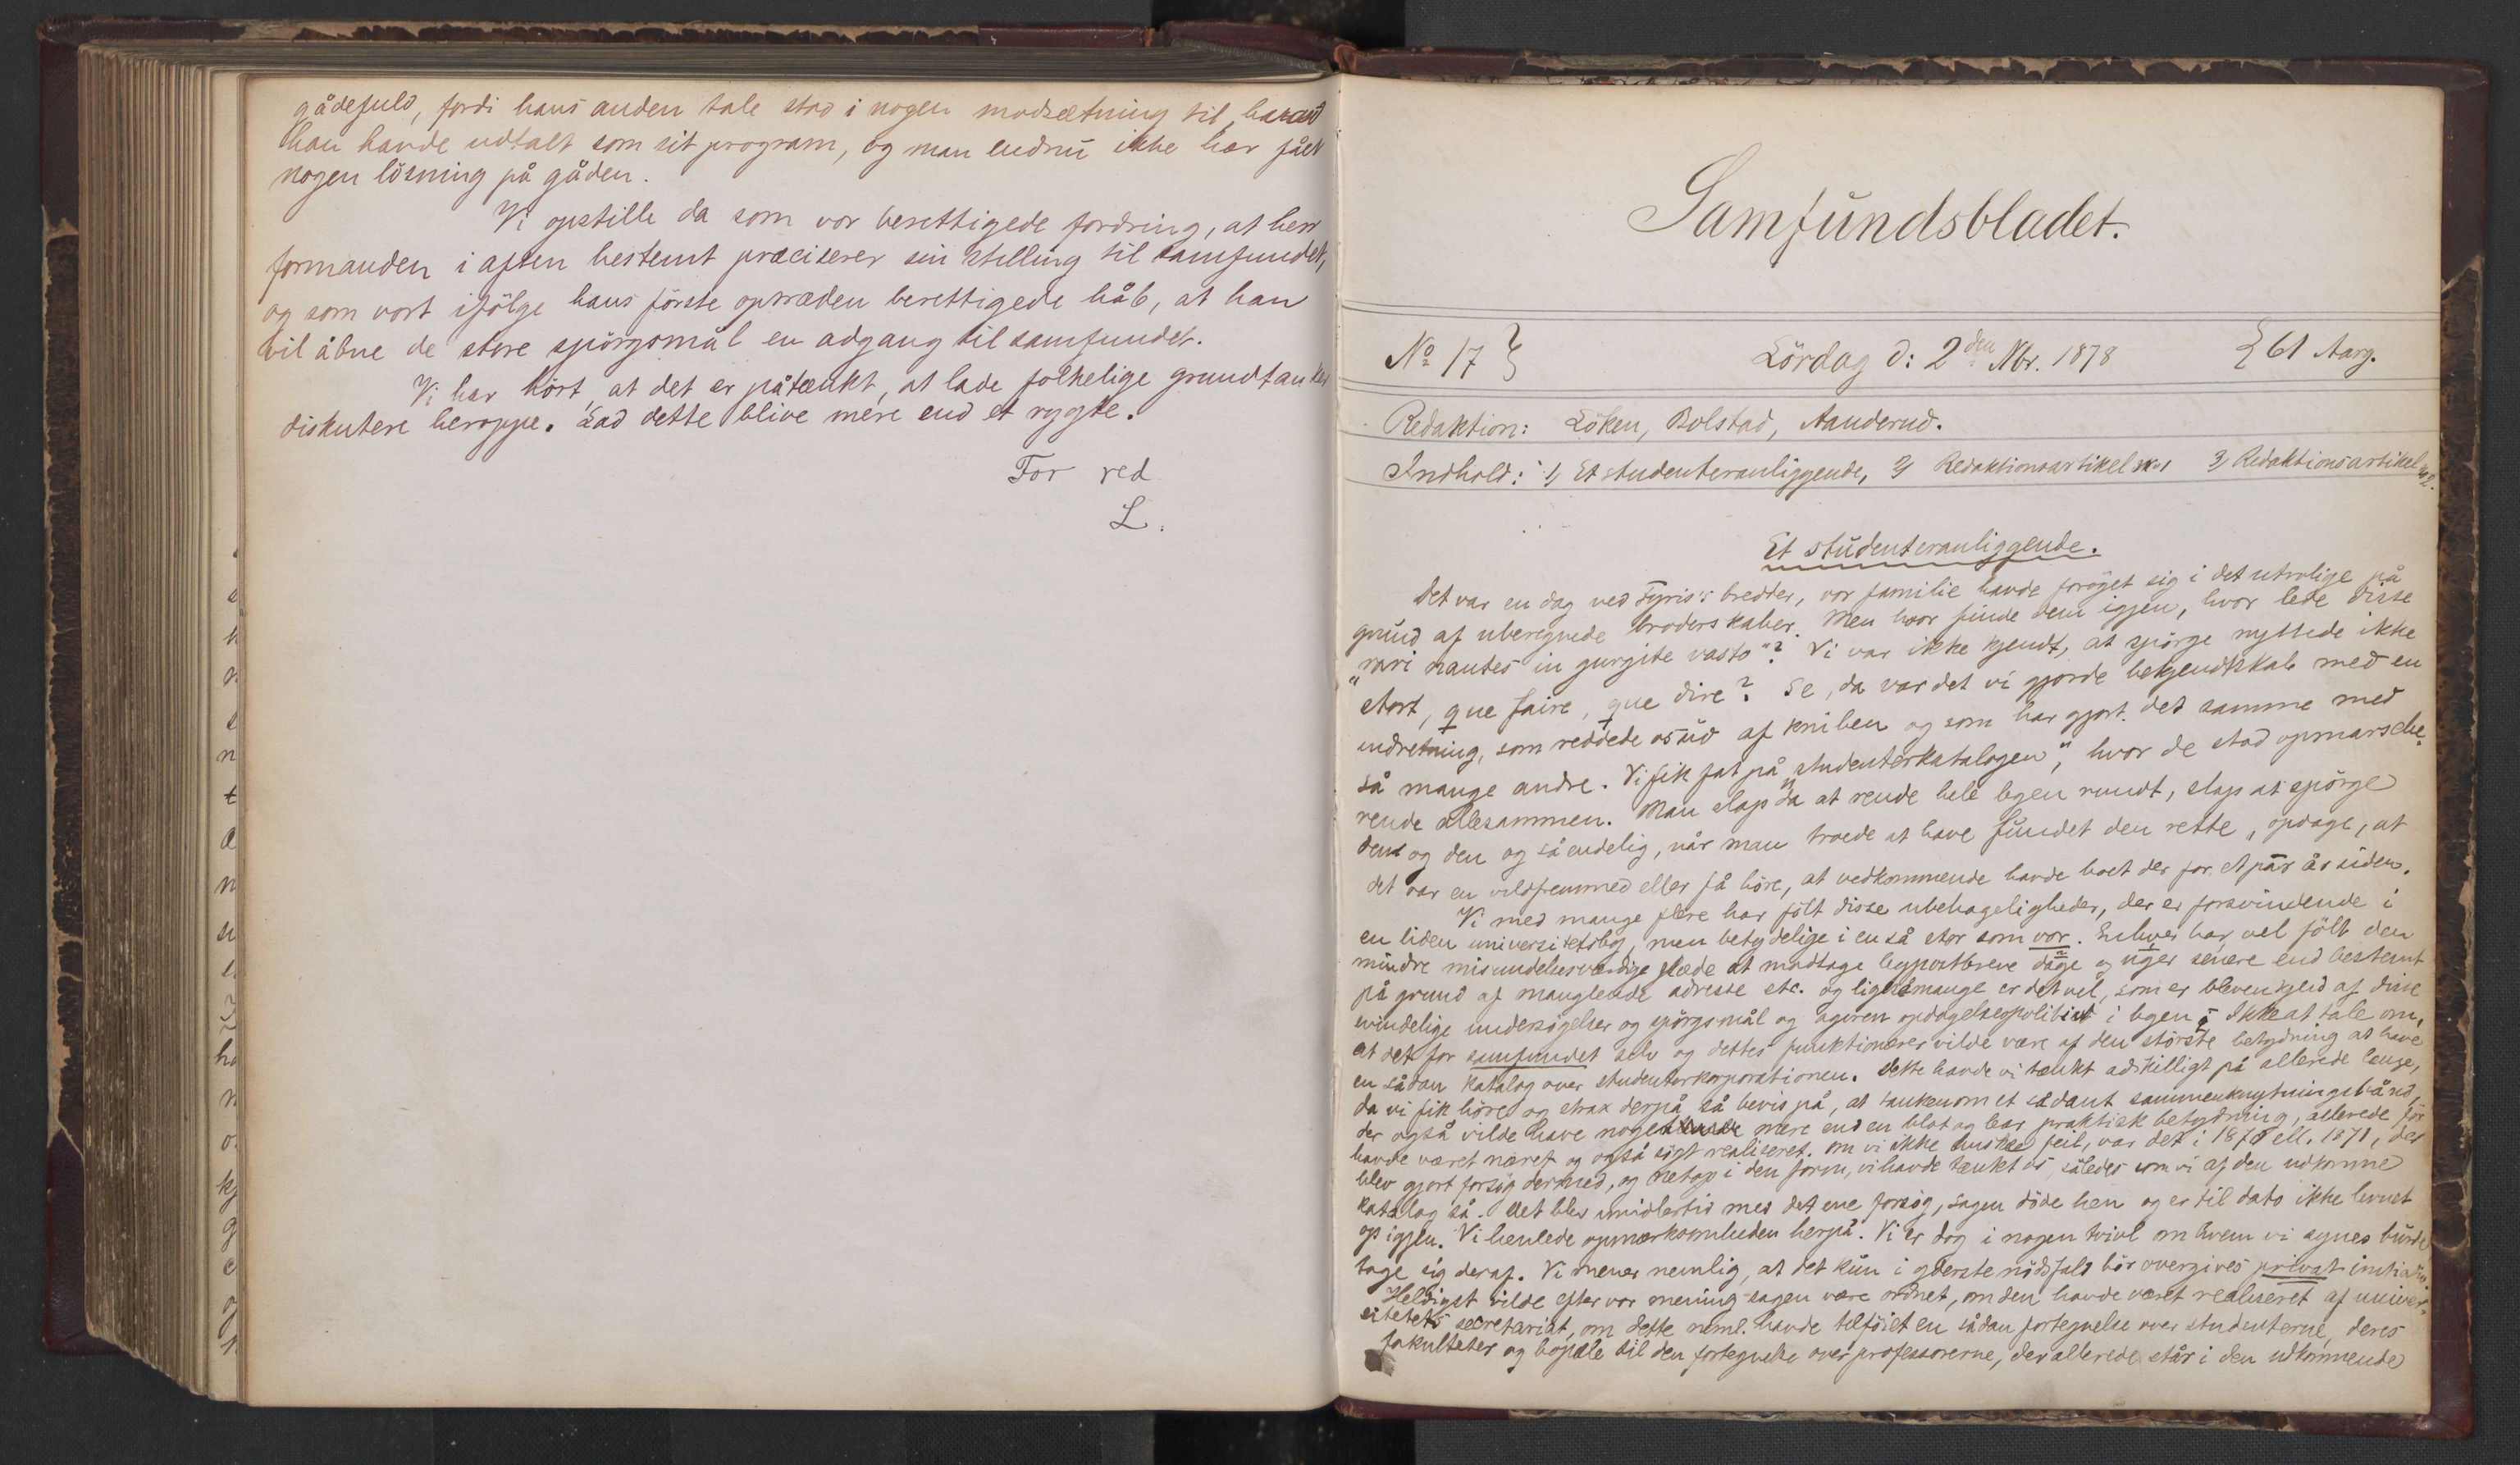 gådefuld, fordi hans anden tale stod i nogen modsætning til, hvad
han havde udtalt som sit program, og man endnu ikke har fået
nogen lösning på gåden.
Vi opstille da som vor berettigede fordring, at herr
formanden i aften bestemt præciserer sin stilling til samfundet,
og som vort ifölge hans förste optræden berettigede håb, at han
vil åbne de store spörgsmål en adgang til samfundet.
Vi har hört, at det er påtænkt, at lade folkelige grundtanker
diskutere heroppe. Lad dette blive mere end et rygte.
For red
L.
Samfundsbladet.
No 17 Lördag d: 2den Nbr. 1878 61 Aarg.
Redaktion: Löken, Bolstad, Aanderud.
Indhold: 1, Et studenteranliggende, 2, Redaktionsartikel no 1 3, Redaktionsartikel no 2.
Et studenteranliggende.
Det var en dag ved Fyris's bredder, vor familie havde foröget sig i det utrolige på
grund af uberegnede broderskaber. Men hvor finde dem igjen, hvor lede disse
"rari nantes in gurgite vasto"? Vi var ikke kjendt, at spörge nyttede ikke
stort, que faire, que dire? Se, da var det vi gjorde bekjendtskab med en
indretning, som reddede os ud af kniben og som har gjort det samme med
så mange andre. Vi fik fat på "studenterkatalogen", hvor de stod opmarsche-
rende allesammen. Man slap da at rende hele byen rundt, slap at spörge
den og den og så endelig, når man troede at have fundet den rette, opdage, at
det var en vildfremmed eller få höre, at vedkommende havde boet der for et par år siden.
Vi med mange flere har fölt disse ubehageligheder, der er forsvindende i
en liden universitetsby, men betydelige i en så stor som vor. Enhver har vel fölt den
mindre misundelsesværdige glæde at modtage bypostbreve dage og uger senere end bestemt
på grund af manglende adresse etc. og ligeså mange er det vel, som er bleven kjed af disse
evindelige undersögelser og spörgsmål og ageren opdagelsespolitist i byen. Ikke at tale om,
at det for samfundet selv og dettes funktionærer vilde være af den störste betydning at have
en sådan katalog over studenterkorporationen. Dette havde vi tænkt adskilligt på allerede længe,
da vi fik höre og strax derpå så bevis på, at tanken om et sådant sammenknytningsbånd,
der også vilde have noget mere end en blot og bar praktisk betydning, allerede för
havde været næret og også sögt realiseret. Om vi ikke huske feil, var det i 1870 ell. 1871, der
blev gjort forsög dermed, og netop i den form, vi havde tænkt os, således som vi af den udkomne
katalog så. Det blev imidlertid med det ene forsög, sagen döde hen og er til dato ikke levnet
op igjen. Vi henlede opmærksomheden herpå. Vi er dog i nogen tvivl om hvem vi synes burde
tage sig deraf. Vi mener nemlig, at det kun i yderste nödsfald bör overgives privat initiativ.
Heldigst vilde efter vor mening sagen være ordnet, om den havde været realiseret af univer-
sitetets secretariat, om dette neml. havde tilföiet en sådan fortegnelse over studenterne, deres
fakulteter og bopæle til den fortegnelse over professorerne, der allerede står i den udkommende